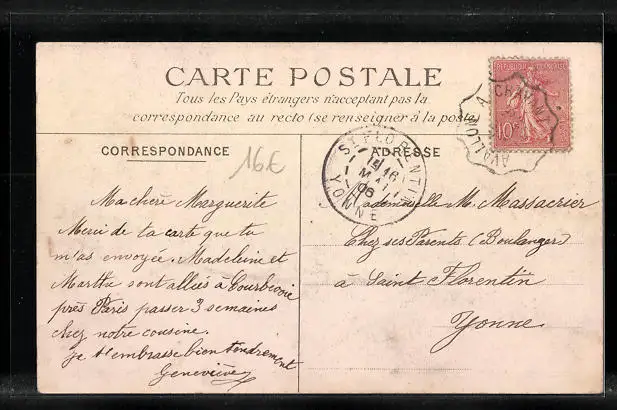 CARTE POSTALE
Tous les Pays étrangers n'acceptent pas la
correspondance au recto (se renseigner à la poste)
CORRESPONDANCE
16€
ADRESSE
REPUBLIQUE FRANÇAISE
10c
AVALLON A
ST FLORENTIN
MAI
06
YONNE
Ma chère Marguerite
Merci de ta carte que tu
m'as envoyée. Madeleine et
Marthe sont allées à Courbevoie
près Paris passer 3 semaines
chez notre cousine.
je t'embrasse bien tendrement
Geneviève
Mademoiselle M. Massacrier
Chez ses Parents (Boulanger)
à Saint Florentin
Yonne